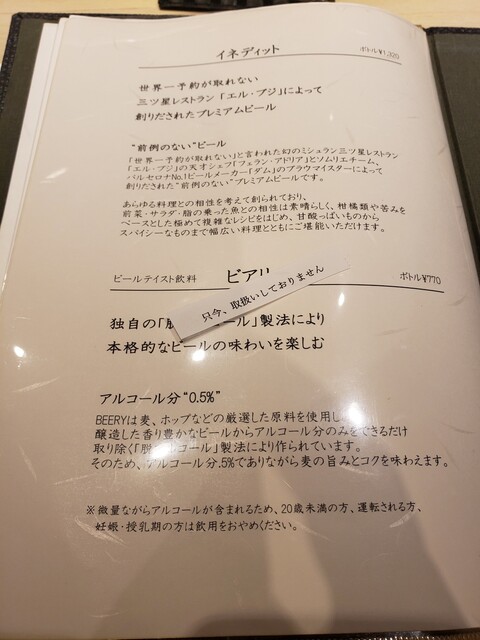 イネディット
ボトル¥1,320
世界一予約が取れない
三ツ星レストラン「エル・ブジ」によって
創りだされたプレミアムビール
"前例のない"ビール
「世界一予約が取れない」と言われた幻のミシュラン三ツ星レストラン
「エル・ブジ」の天才シェフ「フェラン・アドリア」とソムリエチーム、
バルセロナNo.1ビールメーカー「ダム」のブラウマイスターによって
創りだされた"前例のない"プレミアムビールです。
あらゆる料理との相性を考えて創られており、
前菜・サラダ・脂の乗った魚との相性は素晴らしく、柑橘類や苦みを
ベースとした極めて複雑なレシピをはじめ、甘酸っぱいものから
スパイシーなものまで幅広い料理とともにご堪能いただけます。
ビールテイスト飲料
ビアリ
ボトル¥770
只今、取扱いしておりません
独自の「脱 ール」製法により
本格的なビールの味わいを楽しむ
アルコール分"0.5%"
BEERYは麦、ホップなどの厳選した原料を使用し
醸造した香り豊かなビールからアルコール分のみをできるだけ
取り除く「脱アルコール」製法により作られています。
そのため、アルコール分.5%でありながら麦の旨みとコクを味わえます。
※微量ながらアルコールが含まれるため、20歳未満の方、運転される方、
妊娠・授乳期の方は飲用をおやめください。